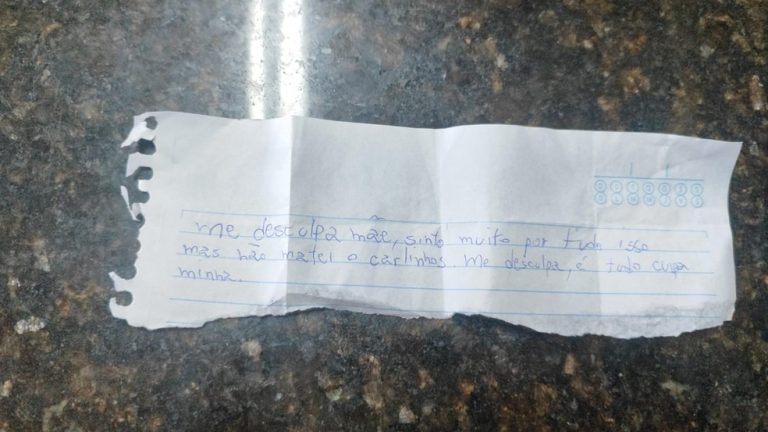 me desculpa mãe, sinto muito por tudo isso
mas não matei o carlinhos. me desculpa, é tudo culpa
minha.